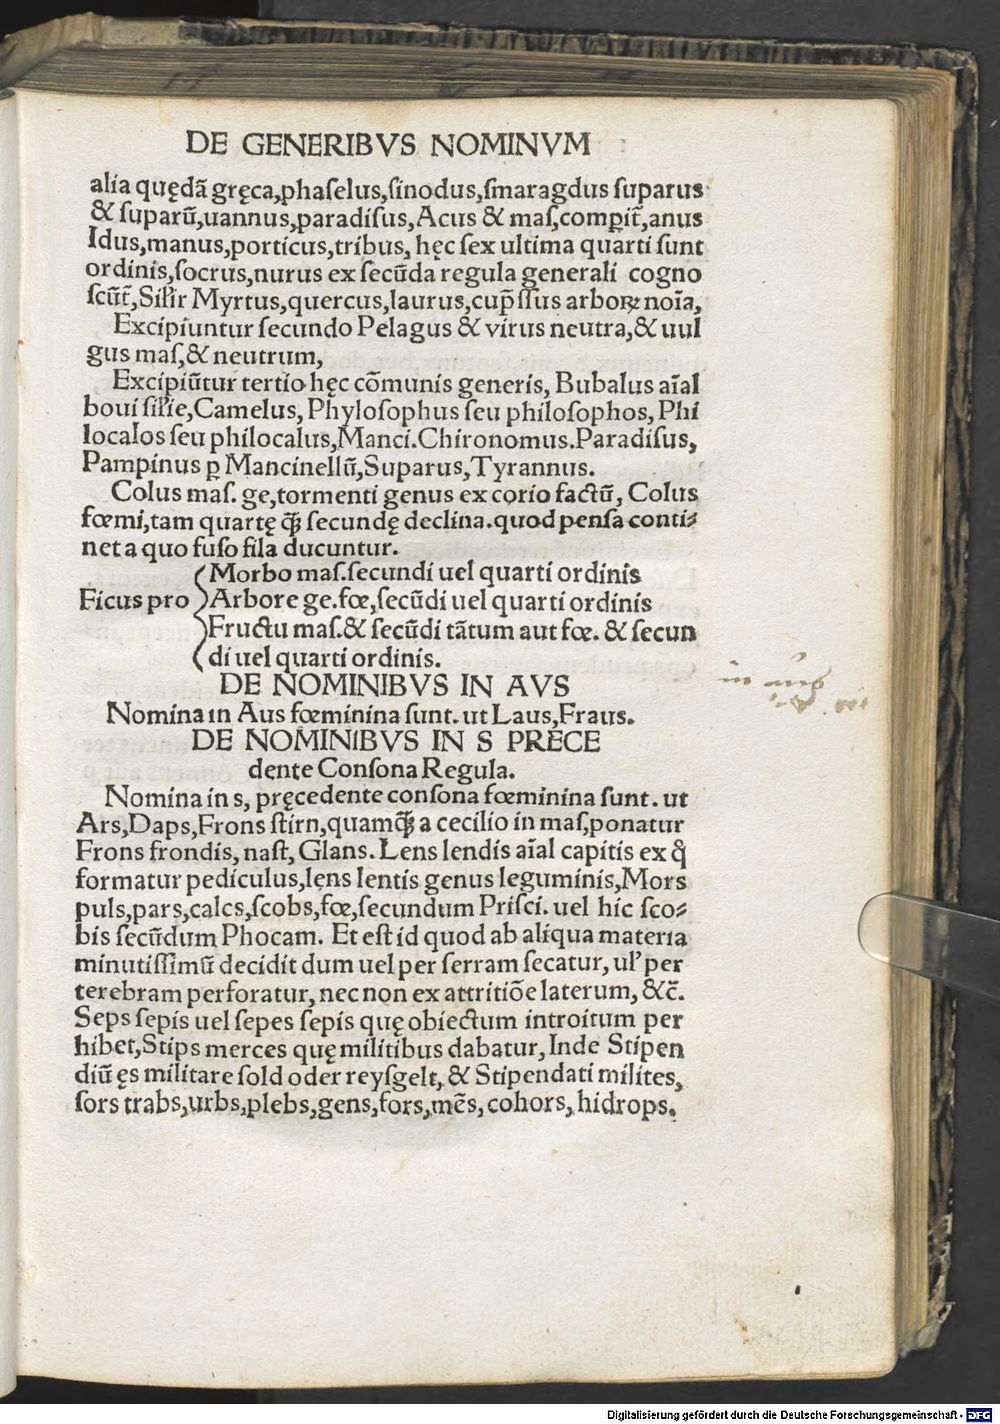 DE GENERIBVS NOMINVM
alia quędā gręca,phaselus,sinodus,smaragdus suparus
& suparū,uannus,paradisus,Acus & mas,comꝑit̄,anus
Idus,manus,porticus,tribus, hęc sex ultima quarti sunt
ordinis,socrus,nurus ex secūda regula generali cogno
scūt̄,Silir Myrtus,quercus,laurus,cup̄ssus arboꝝ noīa,
Excipiuntur secundo Pelagus & virus neutra,& uul
gus mas,& neutrum,
Excipiūtur tertio hęc cōmunis generis, Bubalus aīal
boui silīe,Camelus, Phylosophus seu philosophos, Phi
localos seu philocalus,Manci.Chironomus.Paradisus,
Pampinus ꝑ Mancinellū,Suparus,Tyrannus.
Colus mas. ge,tormenti genus ex corio factū, Colus
fœmi,tam quartę qꝫ̄ secundę declina.quod pensa conti⸗
net a quo fuso fila ducuntur.
Morbo mas.secundi uel quarti ordinis
Ficus pro Arbore ge.fœ,secūdi uel quarti ordinis
Fructu mas.& secūdi tātum aut fœ. & secun
di uel quarti ordinis.
DE NOMINIBVS IN AVS
Nomina in Aus fœminina sunt. ut Laus,Fraus.
DE NOMINIBVS IN S PRECE
dente Consona Regula.
Nomina in s, pręcedente consona fœminina sunt. ut
Ars,Daps,Frons stirn,quamqꝫ̄ a cecilio in mas,ponatur
Frons frondis, nast, Glans. Lens lendis aīal capitis ex q̊
formatur pediculus,lens lentis genus leguminis,Mors
puls,pars,calcs,scobs,fœ,secundum Prisci. uel hic sco⸗
bis secūdum Phocam. Et est id quod ab aliqua materia
minutissimū decidit dum uel per serram secatur, ul' per
terebram perforatur, nec non ex attritiōe laterum, &c̄.
Seps sepis uel sepes sepis quę obiectum introitum per
hibet,Stips merces quę militibus dabatur, Inde Stipen
diū ęs militare sold oder reysgelt, & Stipendati milites,
sors trabs,urbs,plebs,gens,fors,mēs, cohors, hidrops.
Digitalisierung gefördert durch die Deutsche Forschungsgemeinschaft - DFG